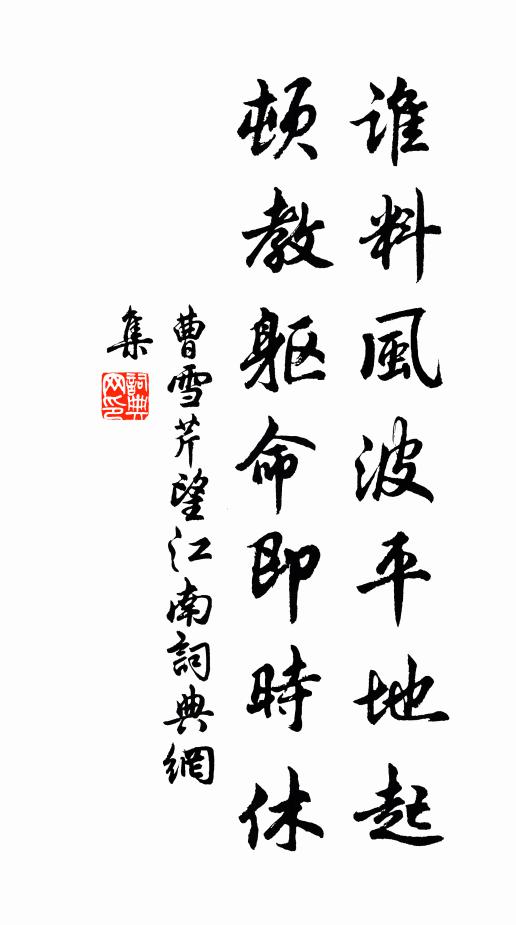 誰料風波平地起
頓教軀命即時休
曹雪芹望江南詞典網
集
詞典网印